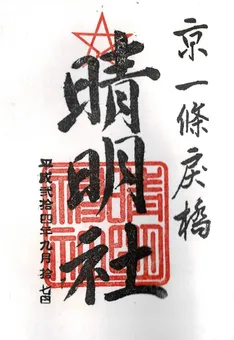 京一條戻橋
晴明社
平成弐拾四年九月拾七日
晴明神社